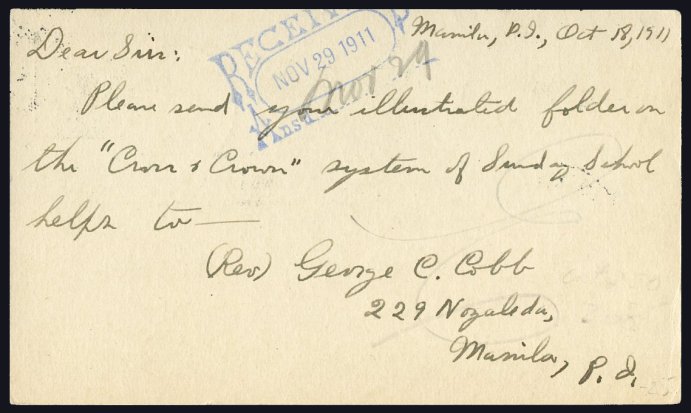 Manila, P.I., Oct 18, 1911
RECEIVED
NOV 29 1911
Ans'd
Nov 29
Dear Sir:
Please send your illustrated folder on
the "Cross & Crown" system of Sunday School
helps to —
(Rev) George C. Cobb
229 Nozaleda,
Manila, P. I.